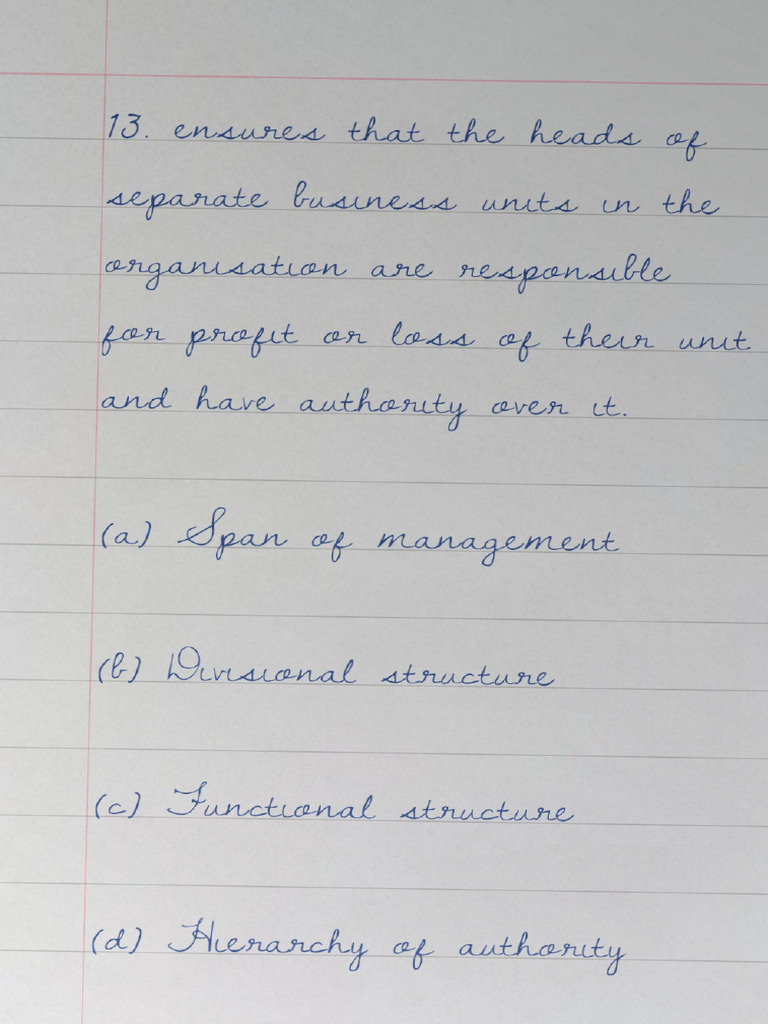 13. ensures that the heads of
separate business units in the
organisation are responsible
for profit or loss of their unit
and have authority over it.
(a) Span of management
(b) Divisional structure
(c) Functional structure
(d) Hierarchy of authority